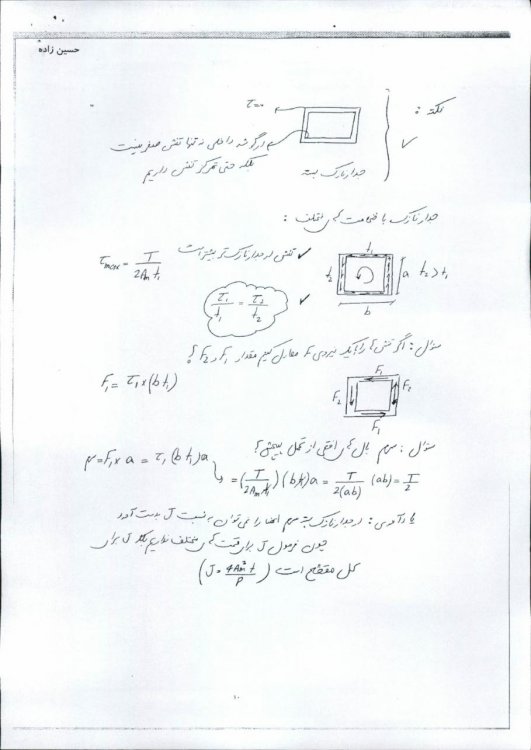 حسین زاده
نکته :
τ=0
در گوشه داخلی نه تنها تنش صفر نیست
بلکه حتی تمرکز تنش داریم
جدار نازک بسته
جدار نازک با ضخامت های مختلف :
τmax = T / 2Am t1
✓ تنش در جدار نازکتر بیشتر است
t1
t2
a t2 > t1
b
✓ τ1/t1 = τ2/t2
سوال : اگر تنش ها را با یک نیروی F معادل کنیم مقدار F1 و F2 ؟
F1 = τ1 × (b t1)
F1
F2
F2
F1
سوال : سهم بال های افقی از تحمل پیچش ؟
= F1 × a = τ1 (b t1) a
= (T / 2Am t1) (b t1) a = T / 2(ab) (ab) = T/2
یادآوری : در جدار نازک بسته سهم اعضا را نمی توان به نسبت J بدست آورد
چون فرمول J برای قسمت های مختلف نداریم بلکه J برای
کل مقطع است (J = 4Am² t / P)